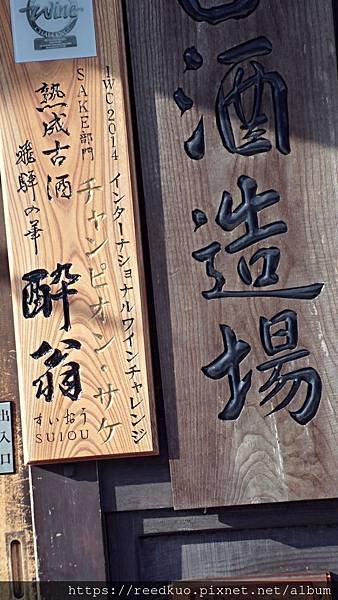 酒造場
インターナショナルワインチャレンジ
IWC2014
SAKE部門
チャンピオン・サケ
熟成古酒
飛騨の華
酔翁
すいおう
SUIOU
Wine
CHALLENGE
出入口
https://reedkuo.pixnet.net/album